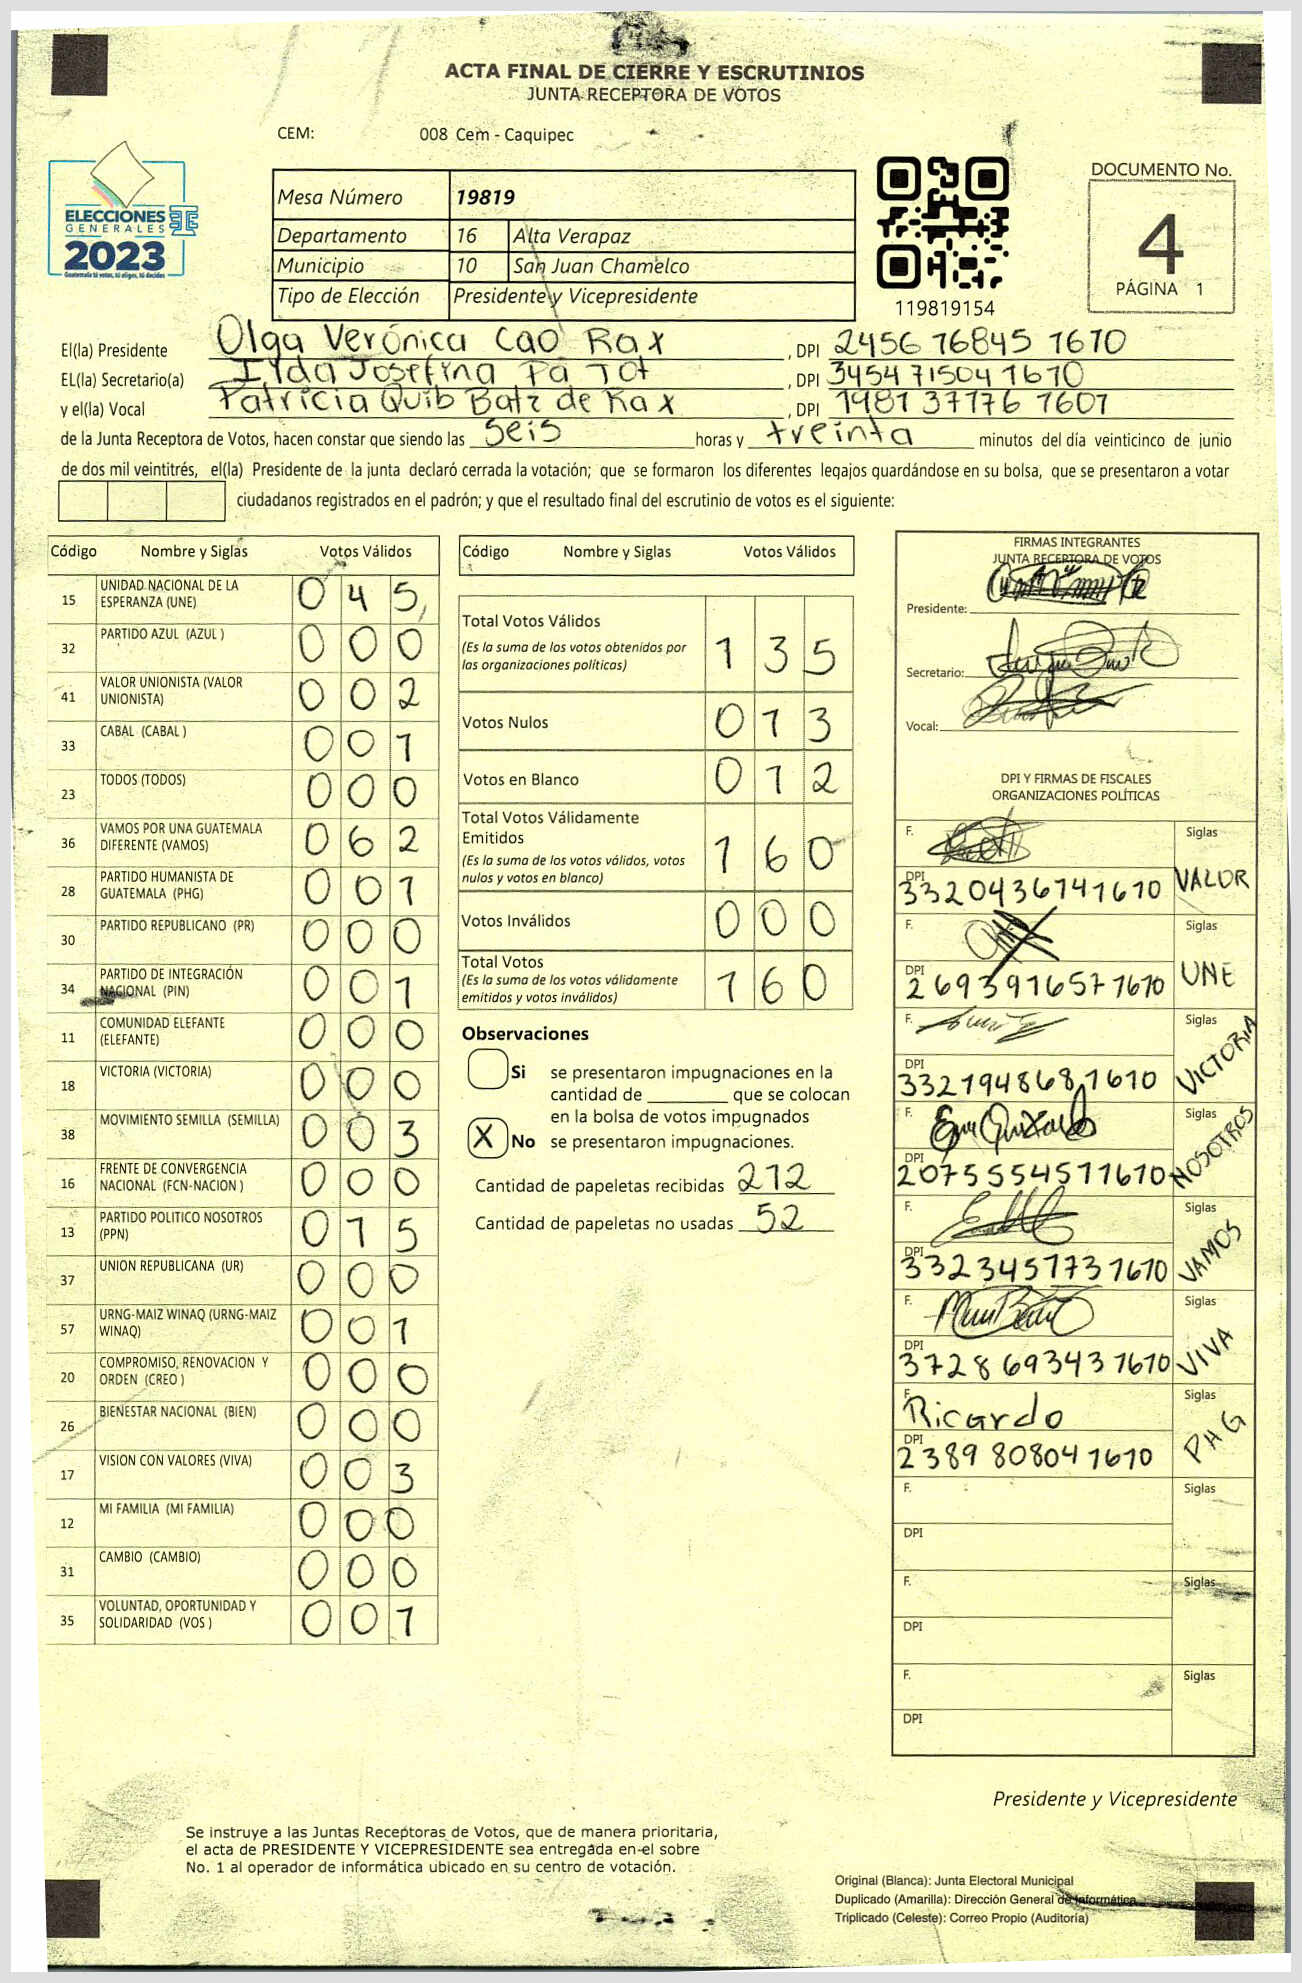 ACTA FINAL DE CIERRE Y ESCRUTINIOS
JUNTA RECEPTORA DE VOTOS
CEM: 008 Cem - Caquipec
ELECCIONES
GENERALES
2023
Guatemala tú votas, tú eliges, tú decides
Mesa Número 19819
Departamento 16 Alta Verapaz
Municipio 10 San Juan Chamelco
Tipo de Elección Presidente y Vicepresidente
119819154
DOCUMENTO No.
4
PÁGINA 1
El(la) Presidente Olga Verónica Cao Rax , DPI 2456 76845 1610
EL(la) Secretario(a) Ilda Josefina Pa Tot , DPI 3454 71504 1610
y el(la) Vocal Patricia Quib Batz de Rax , DPI 1981 37176 1601
de la Junta Receptora de Votos, hacen constar que siendo las seis horas y treinta minutos del día veinticinco de junio
de dos mil veintitrés, el(la) Presidente de la junta declaró cerrada la votación; que se formaron los diferentes legajos guardándose en su bolsa, que se presentaron a votar
ciudadanos registrados en el padrón; y que el resultado final del escrutinio de votos es el siguiente:
Código Nombre y Siglas Votos Válidos
15 UNIDAD NACIONAL DE LA ESPERANZA (UNE) 0 4 5
32 PARTIDO AZUL (AZUL ) 0 0 0
41 VALOR UNIONISTA (VALOR UNIONISTA) 0 0 2
33 CABAL (CABAL ) 0 0 1
23 TODOS (TODOS) 0 0 0
36 VAMOS POR UNA GUATEMALA DIFERENTE (VAMOS) 0 6 2
28 PARTIDO HUMANISTA DE GUATEMALA (PHG) 0 0 1
30 PARTIDO REPUBLICANO (PR) 0 0 0
34 PARTIDO DE INTEGRACIÓN NACIONAL (PIN) 0 0 1
11 COMUNIDAD ELEFANTE (ELEFANTE) 0 0 0
18 VICTORIA (VICTORIA) 0 0 0
38 MOVIMIENTO SEMILLA (SEMILLA) 0 0 3
16 FRENTE DE CONVERGENCIA NACIONAL (FCN-NACION ) 0 0 0
13 PARTIDO POLITICO NOSOTROS (PPN) 0 1 5
37 UNION REPUBLICANA (UR) 0 0 0
57 URNG-MAIZ WINAQ (URNG-MAIZ WINAQ) 0 0 1
20 COMPROMISO, RENOVACION Y ORDEN (CREO ) 0 0 0
26 BIENESTAR NACIONAL (BIEN) 0 0 0
17 VISION CON VALORES (VIVA) 0 0 3
12 MI FAMILIA (MI FAMILIA) 0 0 0
31 CAMBIO (CAMBIO) 0 0 0
35 VOLUNTAD, OPORTUNIDAD Y SOLIDARIDAD (VOS ) 0 0 1
Código Nombre y Siglas Votos Válidos
Total Votos Válidos 1 3 5
(Es la suma de los votos obtenidos por
las organizaciones políticas)
Votos Nulos 0 1 3
Votos en Blanco 0 1 2
Total Votos Válidamente
Emitidos 1 6 0
(Es la suma de los votos válidos, votos
nulos y votos en blanco)
Votos Inválidos 0 0 0
Total Votos 1 6 0
(Es la suma de los votos válidamente
emitidos y votos inválidos)
Observaciones
Si se presentaron impugnaciones en la
cantidad de ________ que se colocan
en la bolsa de votos impugnados
X No se presentaron impugnaciones.
Cantidad de papeletas recibidas 212
Cantidad de papeletas no usadas 52
FIRMAS INTEGRANTES
JUNTA RECEPTORA DE VOTOS
Presidente:
Secretario:
Vocal:
DPI Y FIRMAS DE FISCALES
ORGANIZACIONES POLÍTICAS
F. Siglas
DPI 3320436741610 VALOR
F. Siglas
DPI 2693916571610 UNE
F. Siglas
DPI 3321948681610 VICTORIA
F. Siglas
DPI 2075554571610 NOSOTROS
F. Siglas
DPI 3323451731610 VAMOS
F. Siglas
DPI 3728693431610 VIVA
F. Ricardo Siglas
DPI 2389 80804 1610 PHG
F. Siglas
DPI
F. Siglas
DPI
F. Siglas
DPI
Presidente y Vicepresidente
Se instruye a las Juntas Receptoras de Votos, que de manera prioritaria,
el acta de PRESIDENTE Y VICEPRESIDENTE sea entregada en el sobre
No. 1 al operador de informática ubicado en su centro de votación.
Original (Blanca): Junta Electoral Municipal
Duplicado (Amarilla): Dirección General de Informática
Triplicado (Celeste): Correo Propio (Auditoría)